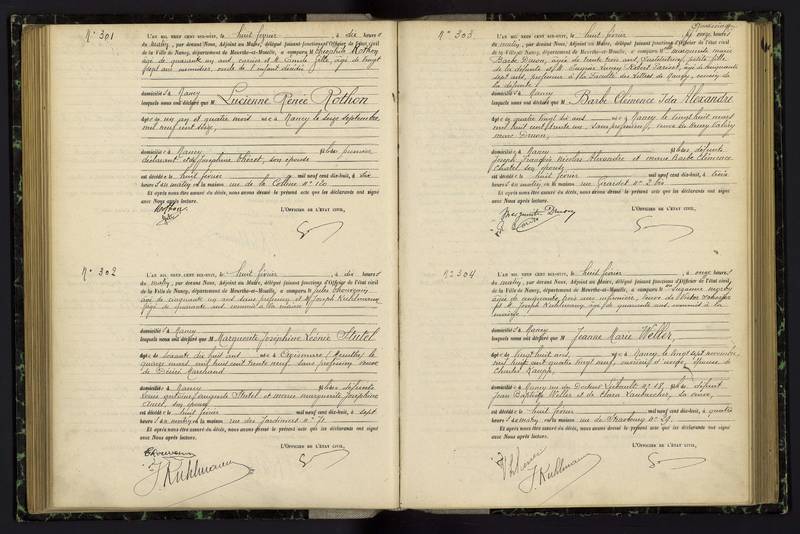 N° 301
L'AN MIL NEUF CENT DIX-HUIT, le huit février, à dix heures
du matin, par devant Nous, Adjoint au Maire, délégué faisant fonctions d'Officier de l'état civil
de la Ville de Nancy, département de Meurthe-et-Moselle, a comparu M Théophile Rothon
âgé de quarante un ans,
domicilié à Nancy
lesquels nous ont déclaré que M Lucienne Renée Rothon
âgée de un an et quatre mois née à Nancy le seize septembre
mil neuf cent seize,
domiciliée à Nancy
déclarant et de Joséphine son épouse
est décédée le huit février mil neuf cent dix-huit, à six
heures du matin, en la maison rue de la Colline n° 120
Et après nous être assuré du décès, nous avons dressé le présent acte que les déclarants ont signé
avec Nous après lecture.
L'OFFICIER DE L'ÉTAT CIVIL,
Rothon
N° 302
L'AN MIL NEUF CENT DIX-HUIT, le huit février, à dix heures
du matin, par devant Nous, Adjoint au Maire, délégué faisant fonctions d'Officier de l'état civil
de la Ville de Nancy, département de Meurthe-et-Moselle, a comparu M Jules
âgé de cinquante un ans sans profession et M Joseph Kuhlmann
âgé de quarante ans commis à la mairie
domiciliés à Nancy
lesquels nous ont déclaré que M Marguerite Joséphine Léonie Stutel
âgée de soixante dix huit ans née à (Meurthe) le
quinze mars mil huit cent trente neuf sans profession veuve
de Marchand
domiciliée à Nancy fille de défunts
Stutel et Marguerite Joséphine
son épouse
est décédée le huit février mil neuf cent dix-huit, à sept
heures du matin, en la maison rue des Jardiniers n° 71
Et après nous être assuré du décès, nous avons dressé le présent acte que les déclarants ont signé
avec Nous après lecture.
L'OFFICIER DE L'ÉTAT CIVIL,
J. Kuhlmann
N° 303
L'AN MIL NEUF CENT DIX-HUIT, le huit février, à onze heures
du matin, par devant Nous, Adjoint au Maire, délégué faisant fonctions d'Officier de l'état civil
de la Ville de Nancy, département de Meurthe-et-Moselle, a comparu Marguerite Marie
Barbe Druon, âgée de trente trois ans, petite fille
de la défunte et M Robert Parisot, âgé de cinquante
sept ans, professeur à la Faculté des Lettres de Nancy,
la défunte
domiciliés à Nancy
lesquels nous ont déclaré que M Barbe Clémence Ida Alexandre
âgée de quatre vingt dix ans née à Nancy le vingt huit mars
mil huit cent sans profession, veuve de Henry
Druon,
domiciliée à Nancy fille de défunts
Joseph François Nicolas Alexandre et Marie Barbe Clémence
Chatel son épouse
est décédée le huit février mil neuf cent dix-huit, à
heures du matin, en la maison rue Girardet n° 2 bis
Et après nous être assuré du décès, nous avons dressé le présent acte que les déclarants ont signé
avec Nous après lecture.
L'OFFICIER DE L'ÉTAT CIVIL,
Marguerite Druon
N° 304
L'AN MIL NEUF CENT DIX-HUIT, le huit février, à onze heures
du matin, par devant Nous, Adjoint au Maire, délégué faisant fonctions d'Officier de l'état civil
de la Ville de Nancy, département de Meurthe-et-Moselle, a comparu M Suzanne
âgée de cinquante trois ans infirmière, veuve de Victor
et M Joseph Kuhlmann âgé de quarante ans, commis à la
mairie
domiciliés à Nancy
lesquels nous ont déclaré que M Jeanne Marie Weller,
âgée de vingt huit ans, née à Nancy le vingt sept novembre
mil huit cent quatre vingt neuf, épouse de
Charles
domiciliée à Nancy rue du Docteur Liébault n° 18, fille de défunt
Jean Baptiste Weller et de Claire sa veuve,
est décédée le huit février mil neuf cent dix-huit, à quatre
heures du matin, en la maison rue de Strasbourg n° 29
Et après nous être assuré du décès, nous avons dressé le présent acte que les déclarants ont signé
avec Nous après lecture.
L'OFFICIER DE L'ÉTAT CIVIL,
J. Kuhlmann